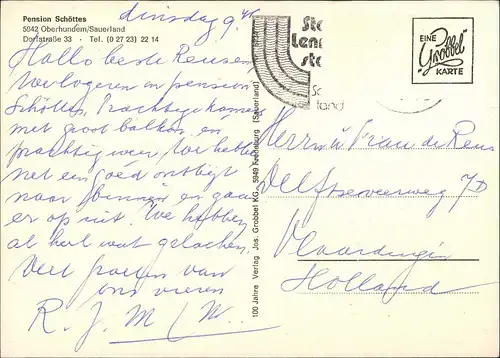 Pension Schöttes
5942 Oberhundem/Sauerland
Dorfstraße 33 · Tel. (0 27 23) 22 14
dinsdag 9.45
Hallo beste Reusen,
We logeren in pension
Schöttes, Prachtige kamers
met groot balkon, en
prachtig weer, We hebben
net een goed ontbijt
naar binnen en gaan
er op uit. We hebben
al heel wat gelachen.
Veel groeten van
ons vieren
R. J. M / W..
100 Jahre Verlag Jos. Grobbel KG, 5949 Fredeburg (Sauerland)
Sta
Lenn
sta
Sa
land
EINE
"Grobbel"
KARTE
Herrn u Frau de Reus
Delftseveerweg 7D
Vlaardingen
Holland